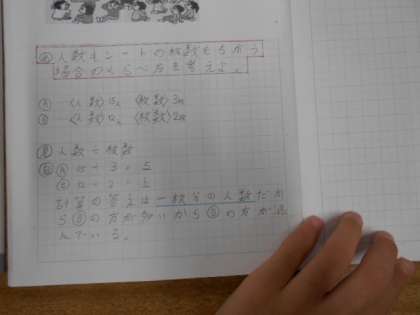 め 人数もシートの枚数もちがう
場合のくらべ方を考えよ。
A 〈人数〉15人 〈枚数〉3枚
B 〈人数〉12人 〈枚数〉2枚
人数÷枚数
A 15÷3=5
B 12÷2=6
計算の答えは一枚分の人数だか
ら Bの方が多いから Bの方がこ
んでいる。